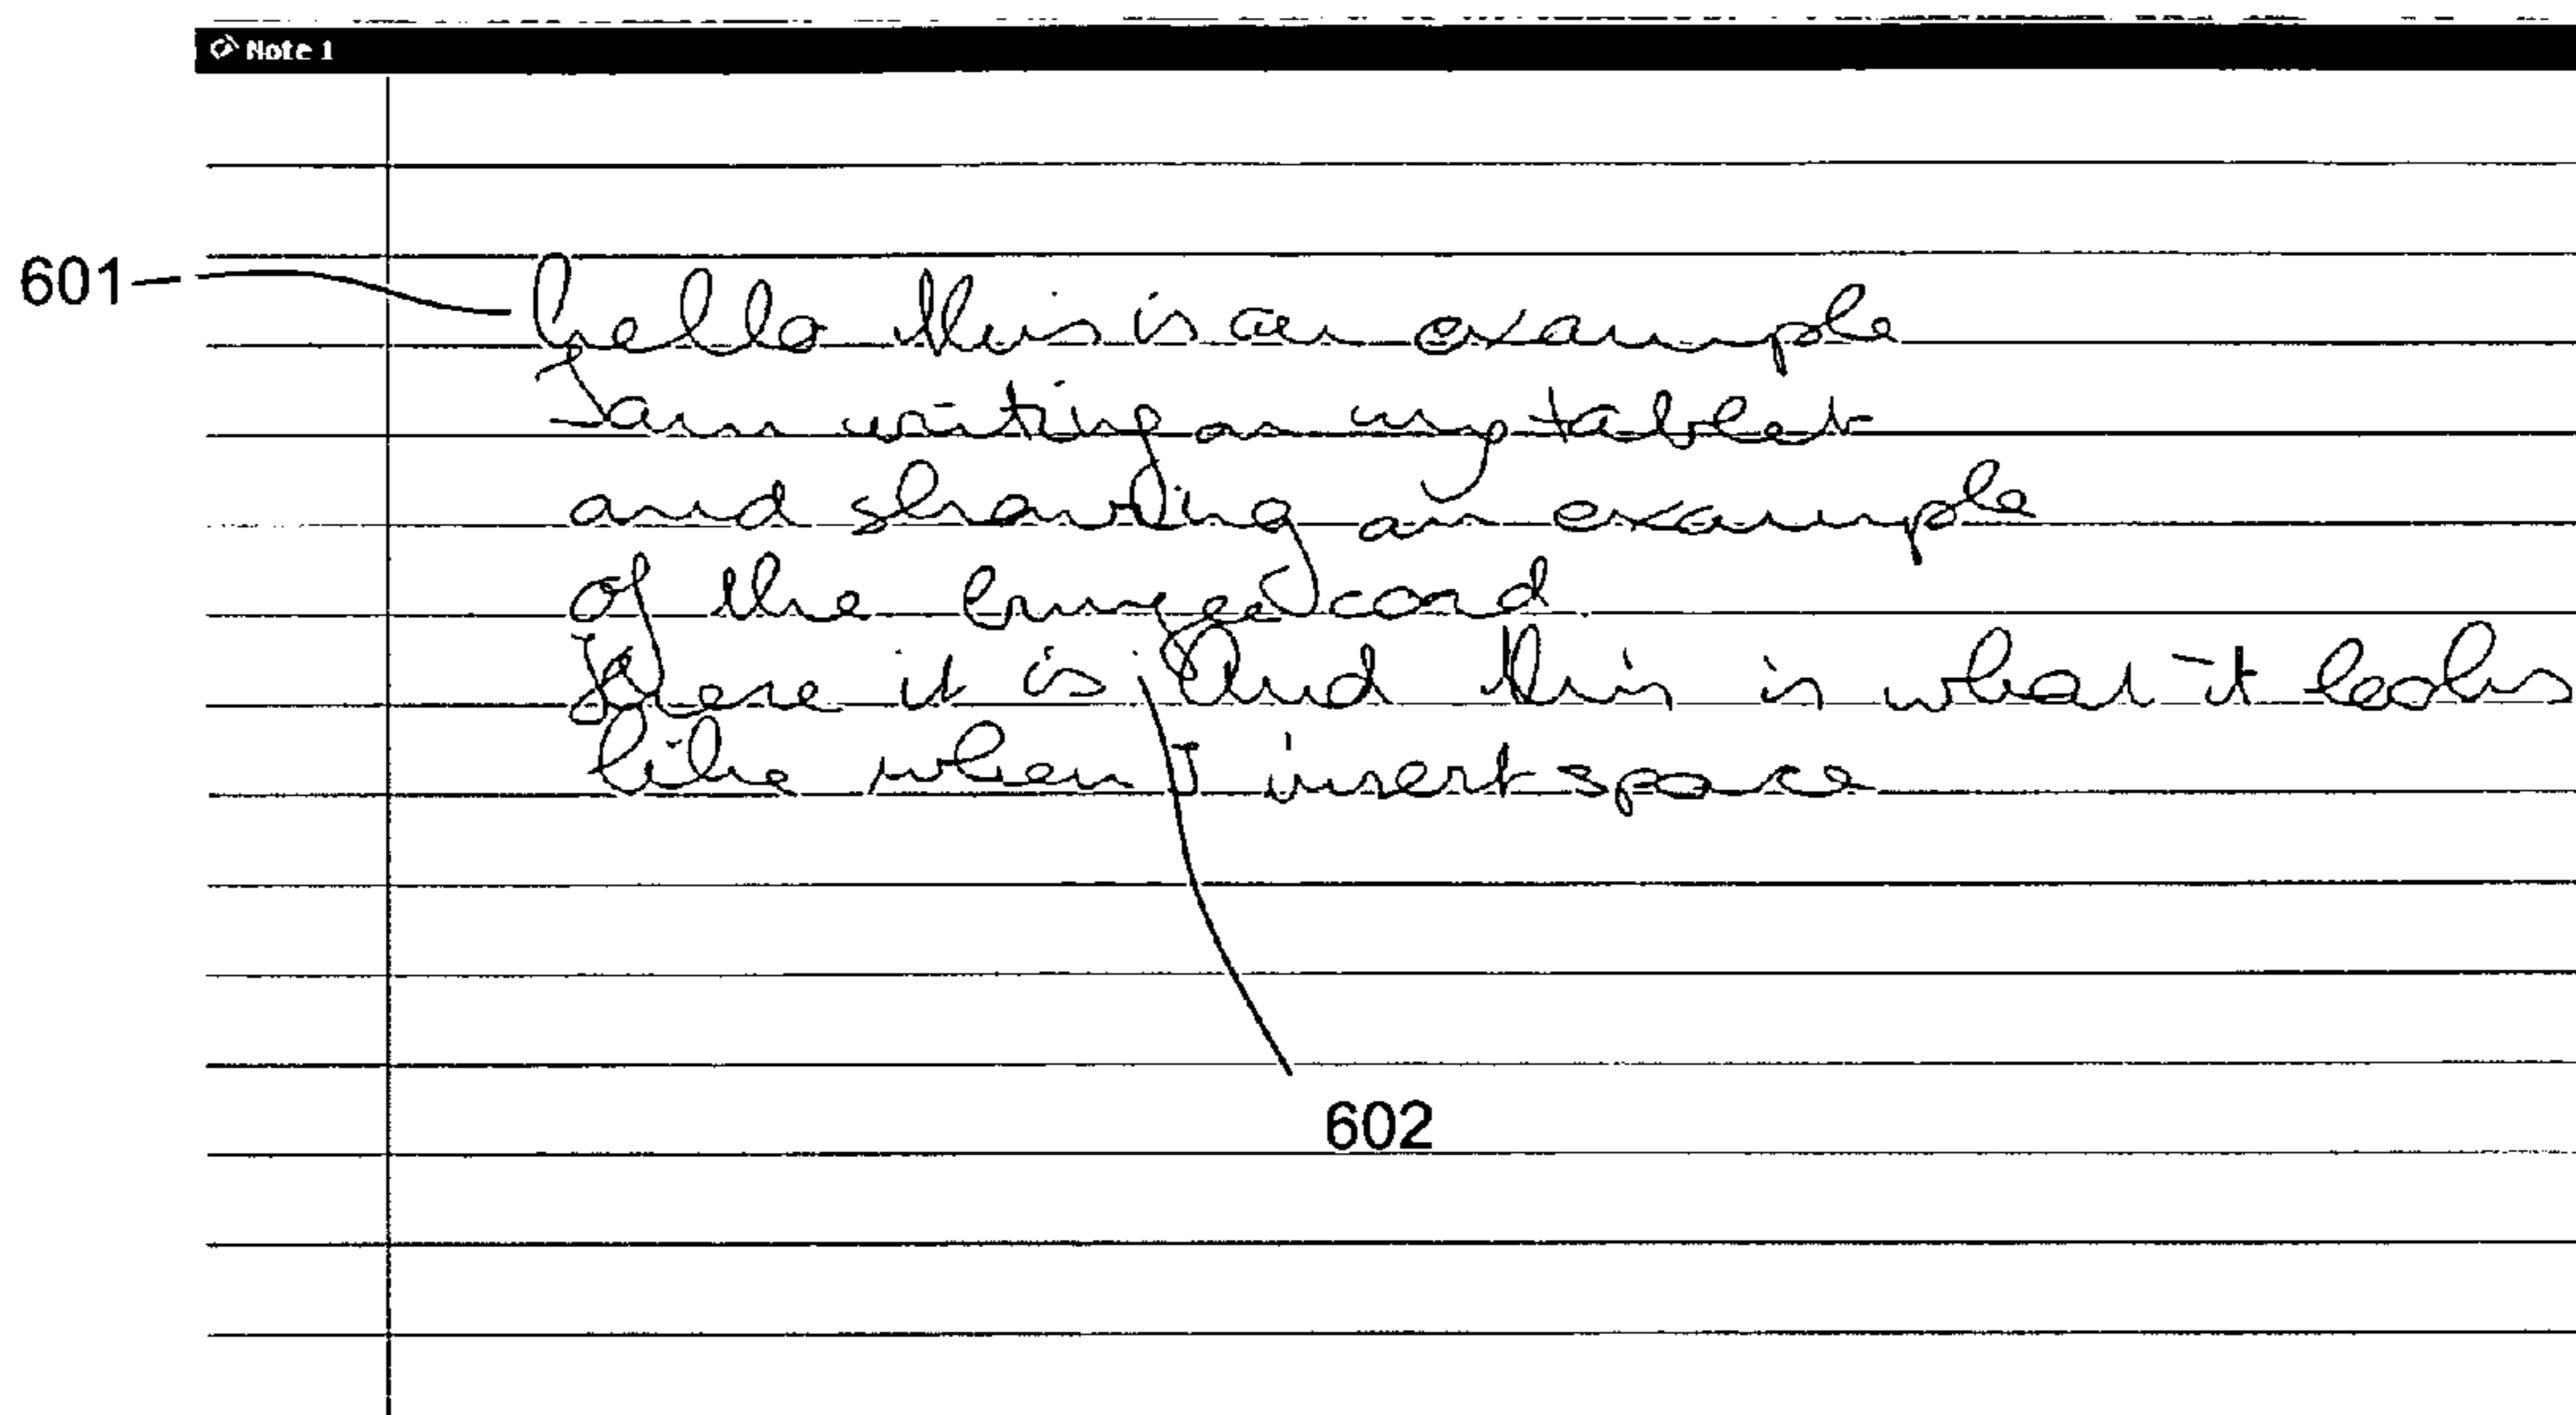 Note 1
601
hello this is an example
I am writing on my tablet
and showing an example
of the bungee cord
Here it is. And this is what it looks
like when I insert space
602